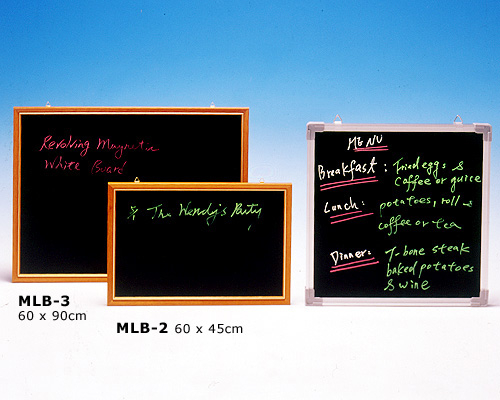 Revolving Magnetic
White Board
※ The Wendy's Party
MENU
Breakfast : Fried eggs &
coffee or guice
Lunch : potatoes, roll &
coffee or tea
Dinner : T-bone steak
baked potatoes
& wine
MLB-3
60 x 90cm
MLB-2 60 x 45cm